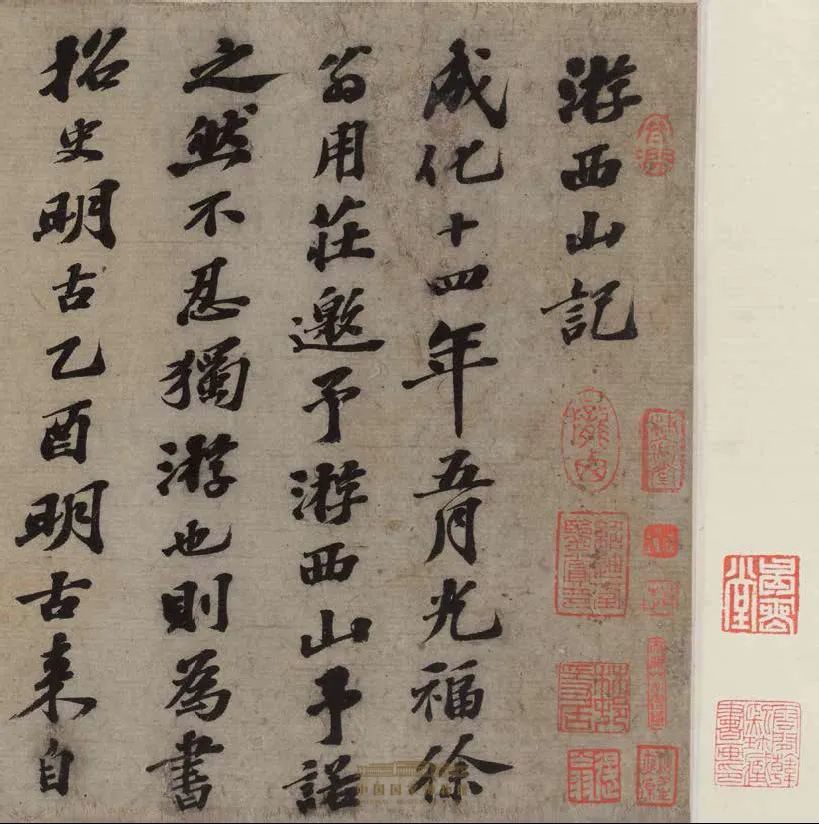 游西山記
成化十四年五月光福徐
翁用莊邀予游西山予諾
之然不忍獨游也則為書
招史明古乙酉明古来自